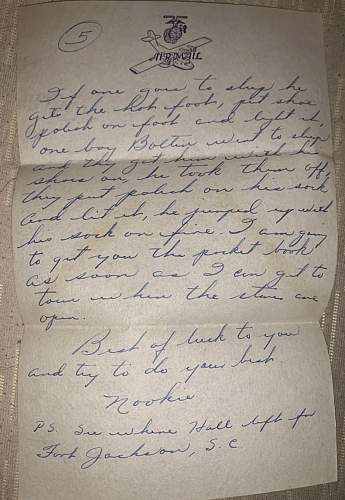 5
AIR MAIL
If one goes to sleep he
gets the hot foot, put shoe
polish on foot and light it
one boy went to sleep
and they got him with his
shoes on he took them off,
they put polish on his sock
and lit it, he jumped up with
his sock on fire. I am going
to get you the pocket book
as soon as I can get to
town when the stores are
open.
Best of luck to you
and try to do your best.
Nookie
P.S. See where Hall left for
Fort Jackson, S.C